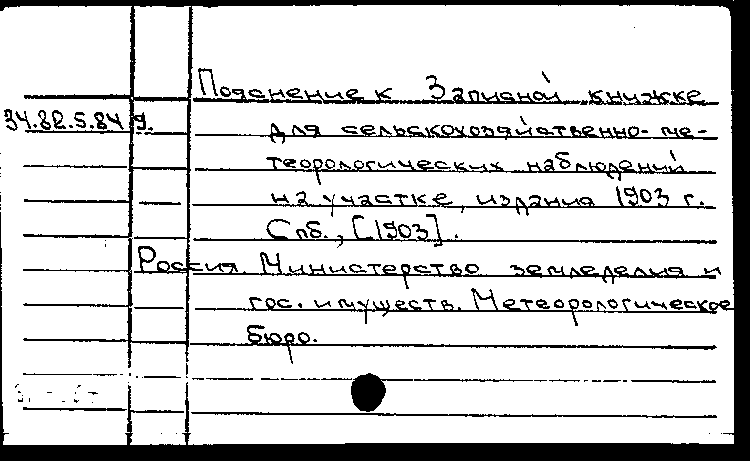 Пояснение к Записной книжке
34.82.5.84 9. для сельскохозяйственно-ме-
теорологических наблюдений
на участке, издания 1903 г.
Спб., [1903].
Россия. Министерство земледелия и
гос. имуществ. Метеорологическое
бюро.